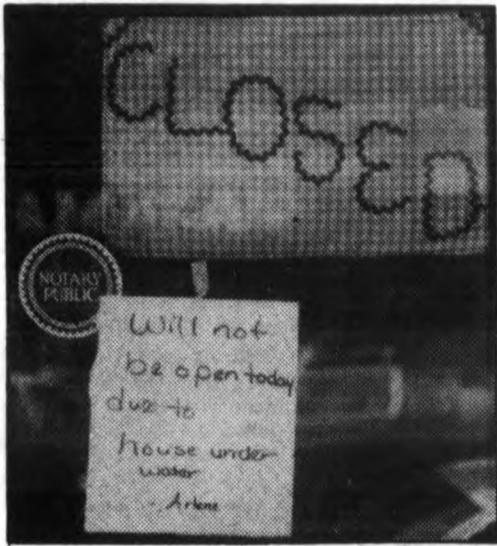 CLOSED
NOTARY
PUBLIC
Will not
be open today
due to
house under
water
- Arlene